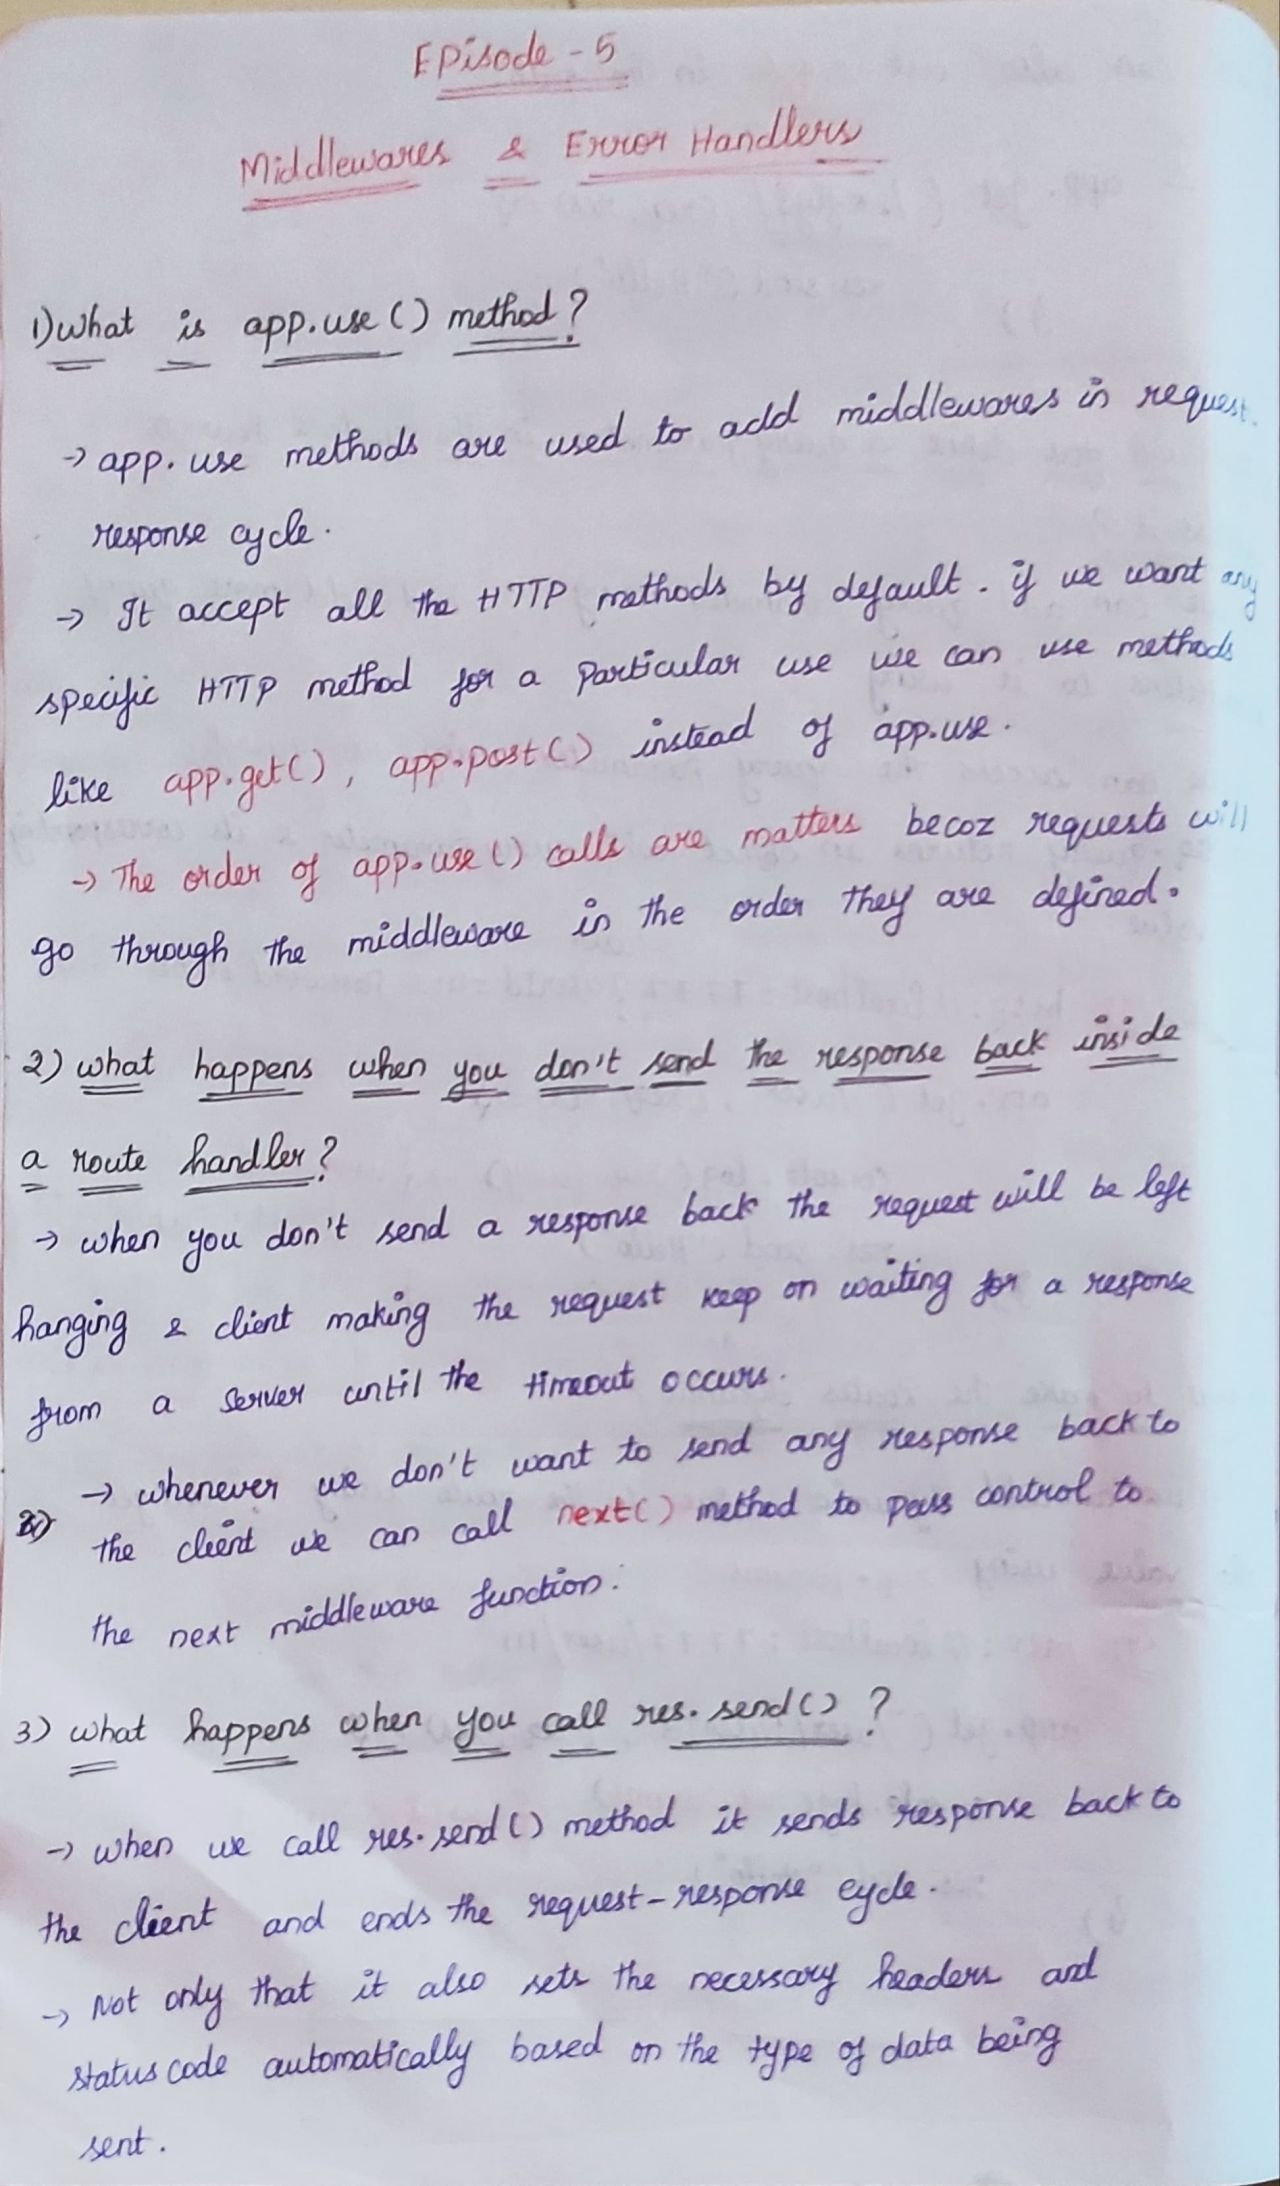 Episode - 5
Middlewares & Error Handlers
1) what is app.use () method?
→ app. use methods are used to add middlewares in request.
response cycle.
→ It accept all the HTTP methods by default. if we want any
specific HTTP method for a particular use we can use methods
like app.get(), app.post() instead of app.use.
→ The order of app.use() calls are matters becoz requests will
go through the middleware in the order they are defined.
2) what happens when you don't send the response back inside
a route handler?
→ when you don't send a response back the request will be left
hanging & client making the request keep on waiting for a response
from a server until the timeout occurs.
→ whenever we don't want to send any response back to
the client we can call next() method to pass control to
the next middleware function.
3) what happens when you call res. send() ?
→ when we call res. send() method it sends response back to
the client and ends the request-response cycle.
→ Not only that it also sets the necessary headers and
status code automatically based on the type of data being
sent.